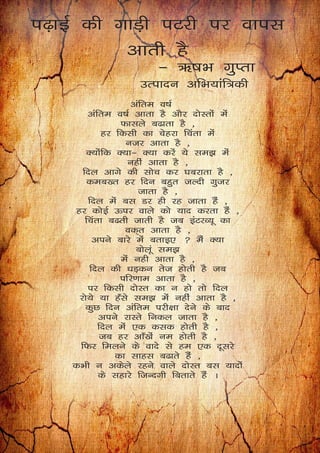 पढ़ाई की गाड़ी पटरी पर वापस
आती है
- ऋषभ गुप्ता
उत्पादन अभियांत्रिकी
अंतिम वर्ष
अंतिम वर्ष आता है और दोस्तों में
फासले बढाता है ,
हर किसी का चेहरा चिंता में
नजर आता है ,
क्योंकि क्या- क्या करें ये समझ में
नहीं आता है ,
दिल आगे की सोच कर घबराता है ,
कमबख्त हर दिन बहुत जल्दी गुजर
जाता है ,
दिल में बस डर ही रह जाता हैं ,
हर कोई ऊपर वाले को याद करता हैं ,
चिंता बढती जाती है जब इंटरव्यू का
वक्त आता है ,
अपने बारे में बताइए ? मैं क्या
बोलूं समझ
में नही आता है ,
दिल की धड़कन तेज होती है जब
परिणाम आता है ,
पर किसी दोस्त का न हो तो दिल
रोये या हँसे समझ में नहीं आता है ,
कुछ दिन अंतिम परीक्षा देने के बाद
अपने रास्ते निकल जाता है ,
दिल में एक कसक होती है ,
जब हर आँखें नम होती है ,
फिर मिलने के वादे से हम एक दूसरे
का साहस बढाते हैं ,
कभी न अकेले रहने वाले दोस्त बस यादों
के सहारे जिन्दगी बिताते हैं ।